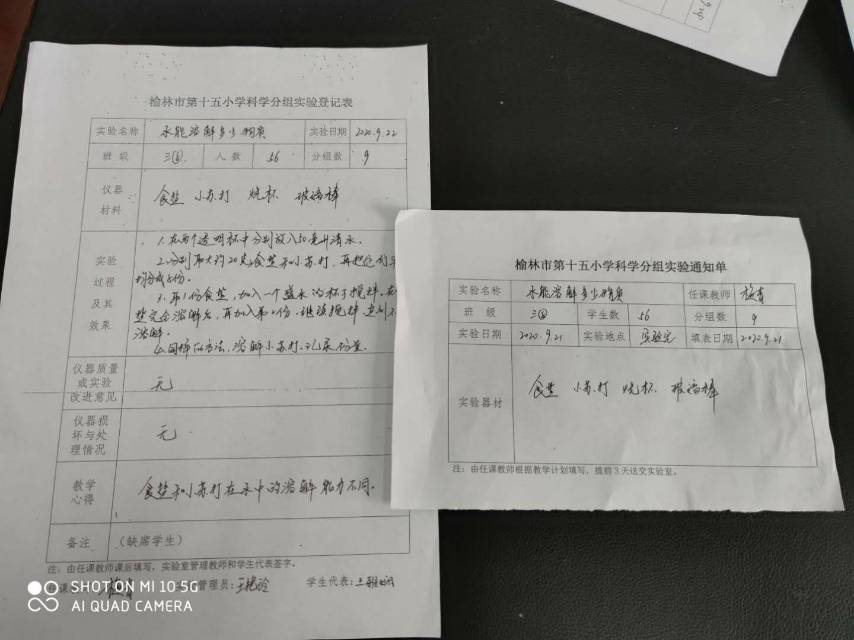 榆林市第十五小学科学分组实验登记表
实验名称 水能溶解多少物质 实验日期 2020.9.22
班 级 三⑥ 人 数 56 分组数 9
仪器
材料
食盐 小苏打 烧杯 玻璃棒
实验
过程
及其
效果
1.在两个透明杯中分别放入50毫升清水。
2.分别取大约20克食盐和小苏打,再把它们
均分成8份。
3.取1份食盐,加入一个盛水的杯子搅拌,
盐完全溶解后,再加入第2份,继续搅拌,直到不
溶解。
4.同样的方法,溶解小苏打,记录份量。
仪器质量
或实验
改进意见
无
仪器损
坏与处
理情况
无
教学
心得
食盐和小苏打在水中的溶解能力不同。
备注 (缺席学生)
注:由任课教师课后填写,实验室管理教师和学生代表签字。
管理员: 学生代表:
榆林市第十五小学科学分组实验通知单
实验名称 水能溶解多少物质 任课教师
班 级 学生数 56 分组数 9
实验日期 2020.9.21 实验地点 实验室 填表日期 2020.9.21
实验器材 食盐 小苏打 烧杯 玻璃棒
注:由任课教师根据教学计划填写,提前3天送交实验室。
SHOT ON MI 10 5G
AI QUAD CAMERA